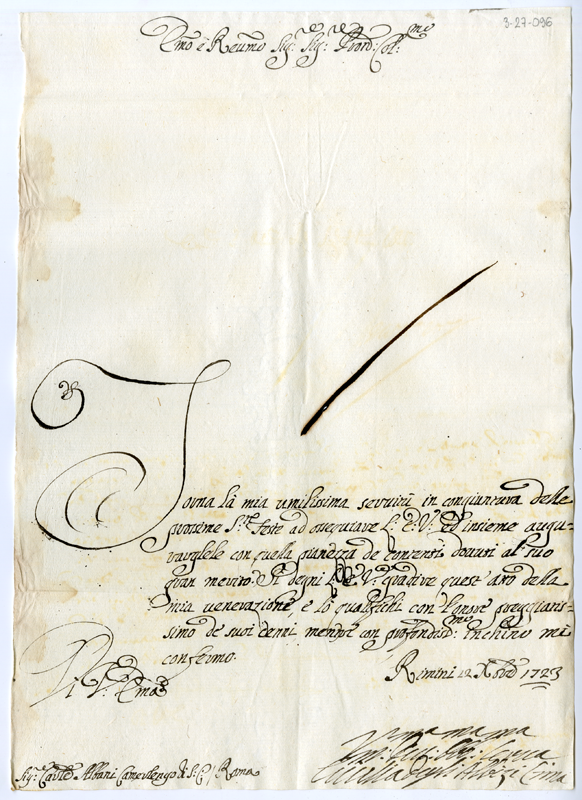 3-27-096
Emo e Reumo Sig:re Sig:re Pron: Col:mo
Torna la mia umilissima servitù in congiuntura delle
prossime S.te Feste ad ossequiare l'E: V: ed insieme augu-
rarglele con quella pienezza de contenti dovuti al suo
gran merito. Si degni l'E: V: gradire quest' atto della
mia venerazione, e lo qualifichi con l'onore preggiatis-
simo de suoi cenni mentre con profondiss:mo inchino mi
confermo.
Di V: Emza
Rimini 12 Xbre 1723
Sig:re Card:le Albani Camerlengo di S: C: / Roma